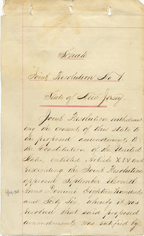 Senate
Joint Resolution No 1
State of New Jersey
Joint Resolution withdrawing
the consent of this state to
the proposed amendment to
the Constitution of the United
States, entitled Article XIV and
rescinding the Joint Resolution
approved September eleventh
Anno Domini Eighteen Hundred
and Sixty Six whereby it was
resolved that said proposed
amendment was ratified by